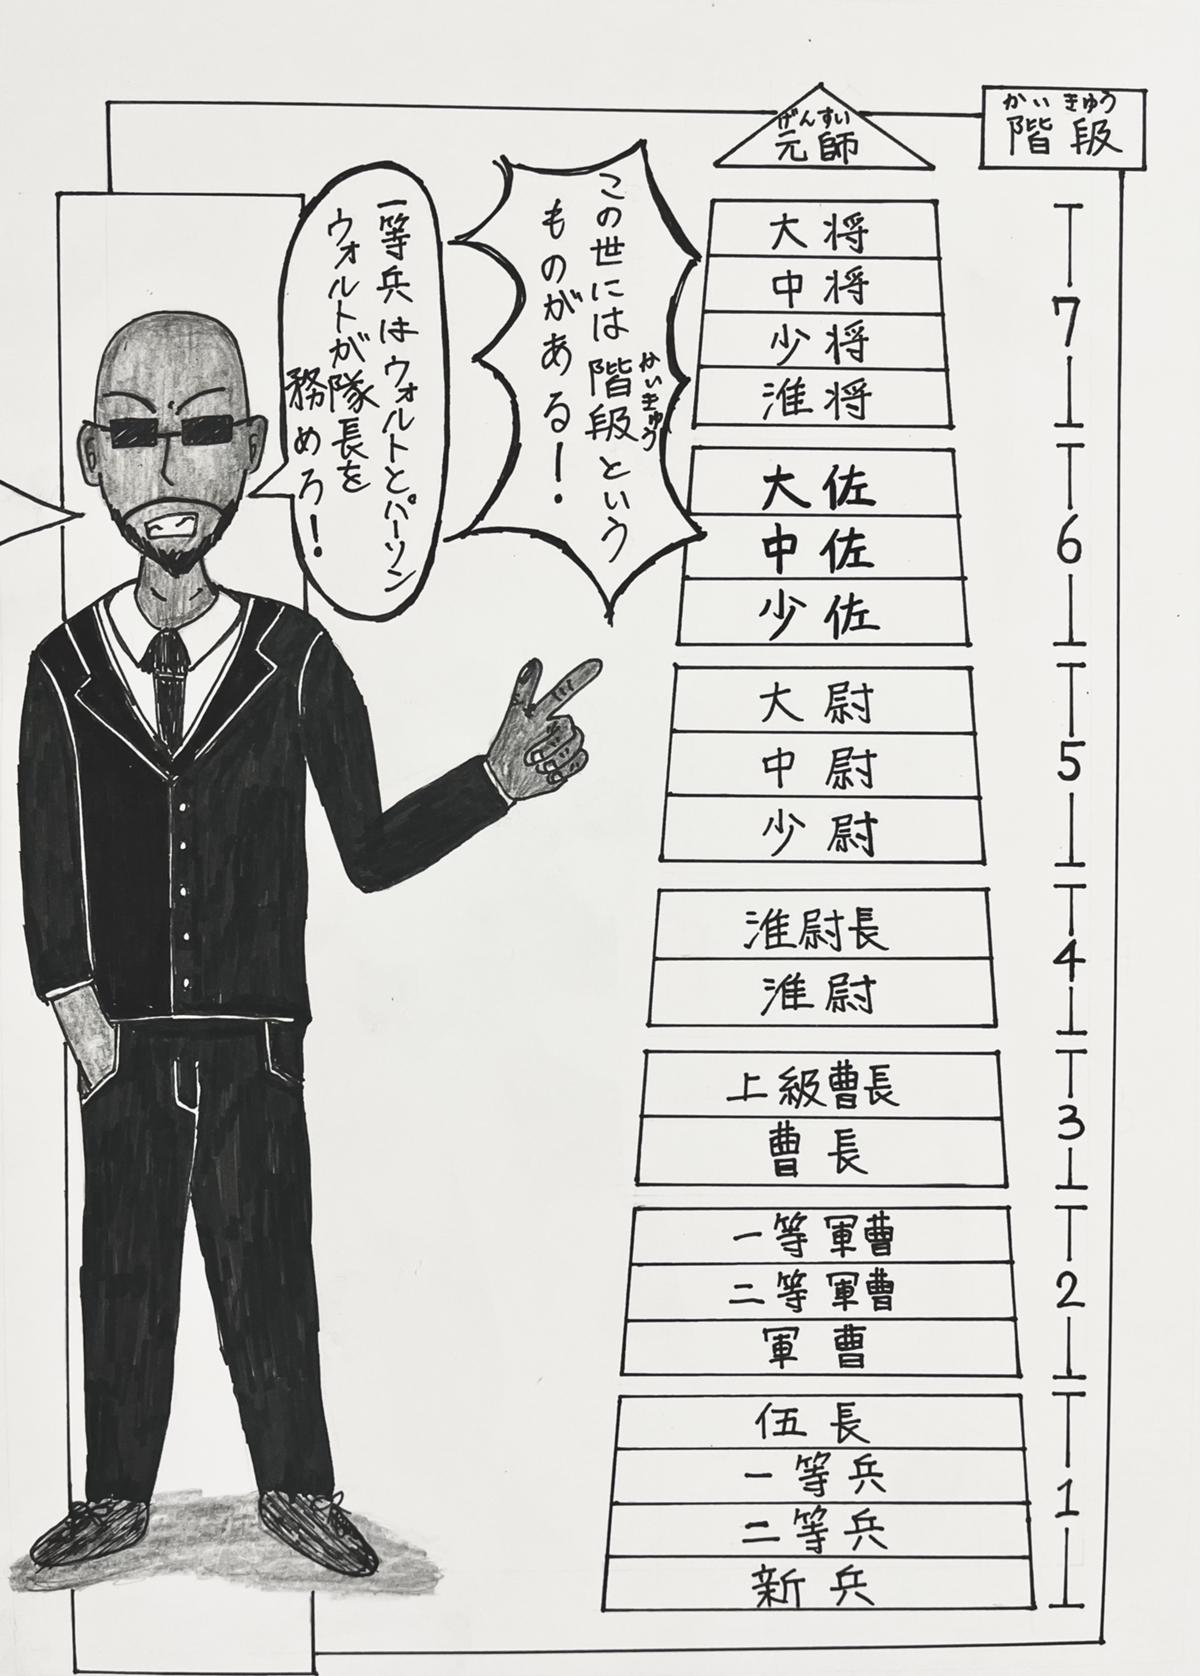 かいきゅう
階段
げんすい
元師
大将
中将
少将
淮将
7
大佐
中佐
少佐
6
大尉
中尉
少尉
5
淮尉長
淮尉
4
上級曹長
曹長
3
一等軍曹
二等軍曹
軍曹
2
伍長
一等兵
二等兵
新兵
1
この世には階段という
かいきゅう
ものがある!
一等兵はウォルトとパーソン
ウォルトが隊長を
務めろ!